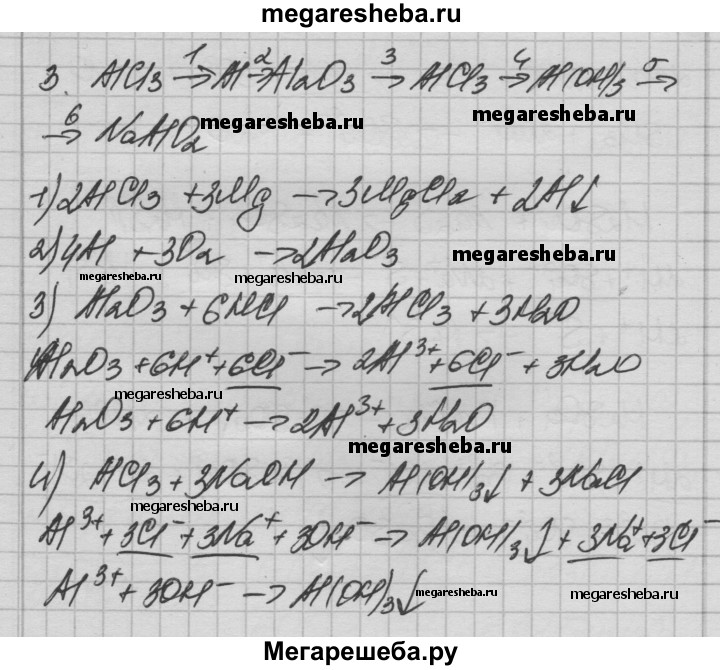 megaresheba.ru
3. AlCl₃ →¹ Al →² Al₂O₃ →³ AlCl₃ →⁴ Al(OH)₃ →⁵
megaresheba.ru
→⁶ NaAlO₂ megaresheba.ru
1) 2AlCl₃ + 3Mg → 3MgCl₂ + 2Al↓
2) 4Al + 3O₂ → 2Al₂O₃ megaresheba.ru
megaresheba.ru megaresheba.ru
3) Al₂O₃ + 6HCl → 2AlCl₃ + 3H₂O
Al₂O₃ + 6H⁺ + 6Cl⁻ → 2Al³⁺ + 6Cl⁻ + 3H₂O
megaresheba.ru
Al₂O₃ + 6H⁺ → 2Al³⁺ + 3H₂O
megaresheba.ru
4) AlCl₃ + 3NaOH → Al(OH)₃↓ + 3NaCl
megaresheba.ru
Al³⁺ + 3Cl⁻ + 3Na⁺ + 3OH⁻ → Al(OH)₃↓ + 3Na⁺ + 3Cl⁻
Al³⁺ + 3OH⁻ → Al(OH)₃↓ megaresheba.ru megaresheba.ru
Мегарешеба.ру